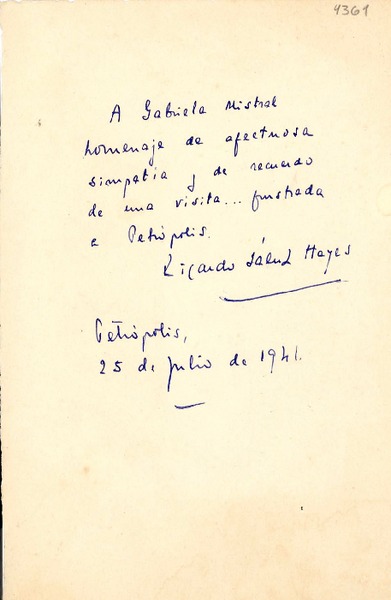 4361
A Gabriela Mistral
homenaje de afectuosa
simpatía y de recuerdo
de una visita... frustrada
a Petrópolis.
Ricardo Sáenz Hayes
Petrópolis,
25 de julio de 1941.